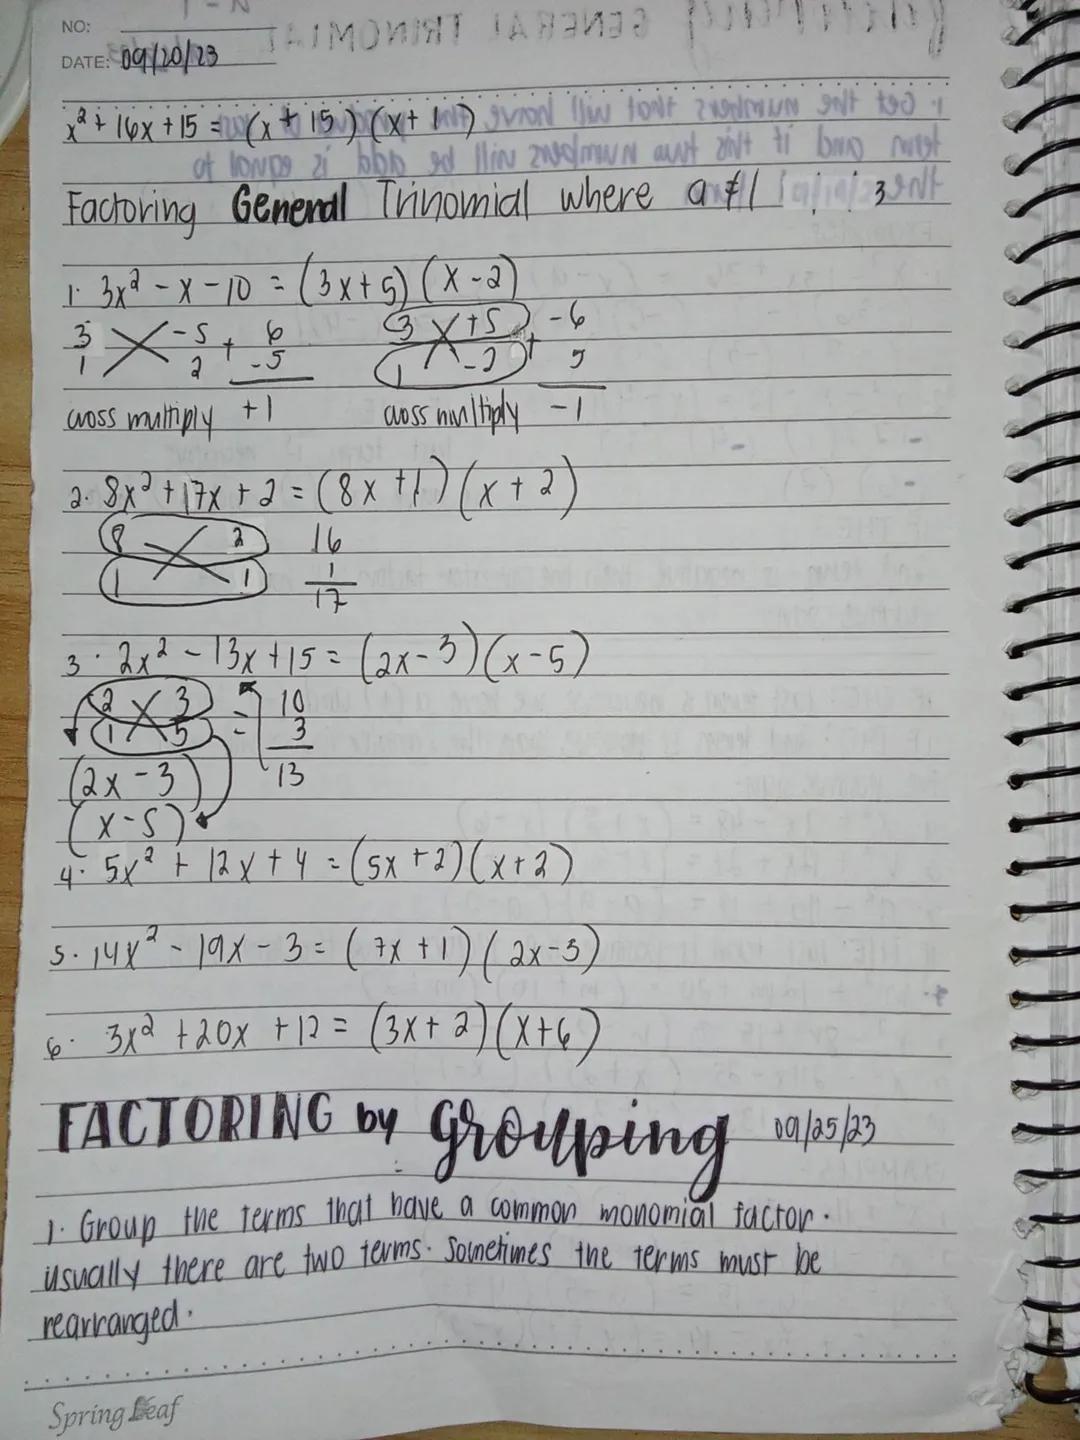 NO:
DATE: 09/20/23
x² + 16x + 15 = (x + 15) (x + 1)
Factoring General Trinomial where a ≠ 1
1. 3x² - x - 10 = (3x + 5) (x - 2)
3 -5 + 6 3 +5 + -6
1 2 -5 1 -2 5
cross multiply +1 cross multiply -1
2. 8x² + 17x + 2 = (8x + 1) (x + 2)
8 2 16
1 1 1
17
3. 2x² - 13x + 15 = (2x - 3) (x - 5)
2 3 = 10
1 5 - 3
(2x - 3) 13
(x - 5)
4. 5x² + 12x + 4 = (5x + 2) (x + 2)
5. 14x² - 19x - 3 = (7x + 1) (2x - 3)
6. 3x² + 20x + 12 = (3x + 2) (x + 6)
FACTORING by grouping 09/25/23
1. Group the terms that have a common monomial factor.
usually there are two terms. Sometimes the terms must be
rearranged.
Spring Leaf